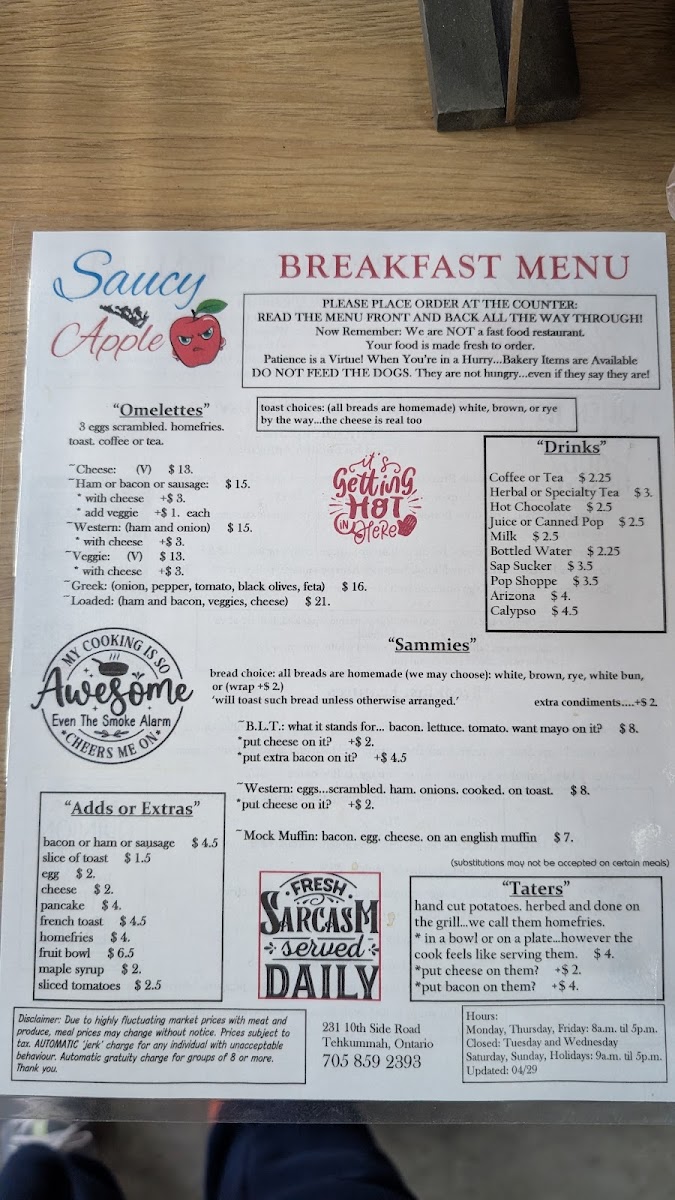 Saucy
Apple
BREAKFAST MENU
PLEASE PLACE ORDER AT THE COUNTER:
READ THE MENU FRONT AND BACK ALL THE WAY THROUGH!
Now Remember: We are NOT a fast food restaurant.
Your food is made fresh to order.
Patience is a Virtue! When You're in a Hurry...Bakery Items are Available
DO NOT FEED THE DOGS. They are not hungry...even if they say they are!
"Omelettes"
3 eggs scrambled. homefries.
toast. coffee or tea.
toast choices: (all breads are homemade) white, brown, or rye
by the way...the cheese is real too
~Cheese: (V) $ 13.
~Ham or bacon or sausage: $ 15.
* with cheese +$ 3.
* add veggie +$ 1. each
~Western: (ham and onion) $ 15.
* with cheese +$ 3.
~Veggie: (V) $ 13.
* with cheese +$ 3.
~Greek: (onion, pepper, tomato, black olives, feta) $ 16.
~Loaded: (ham and bacon, veggies, cheese) $ 21.
it's
Getting
HOT
IN HERE
"Drinks"
Coffee or Tea $ 2.25
Herbal or Specialty Tea $ 3.
Hot Chocolate $ 2.5
Juice or Canned Pop $ 2.5
Milk $ 2.5
Bottled Water $ 2.25
Sap Sucker $ 3.5
Pop Shoppe $ 3.5
Arizona $ 4.
Calypso $ 4.5
MY COOKING IS SO
Awesome
Even The Smoke Alarm
CHEERS ME ON
"Sammies"
bread choice: all breads are homemade (we may choose): white, brown, rye, white bun,
or (wrap +$ 2.)
'will toast such bread unless otherwise arranged.' extra condiments....+$ 2.
~B.L.T.: what it stands for... bacon. lettuce. tomato. want mayo on it? $ 8.
*put cheese on it? +$ 2.
*put extra bacon on it? +$ 4.5
~Western: eggs...scrambled. ham. onions. cooked. on toast. $ 8.
*put cheese on it? +$ 2.
~Mock Muffin: bacon. egg. cheese. on an english muffin $ 7.
(substitutions may not be accepted on certain meals)
"Adds or Extras"
bacon or ham or sausage $ 4.5
slice of toast $ 1.5
egg $ 2.
cheese $ 2.
pancake $ 4.
french toast $ 4.5
homefries $ 4.
fruit bowl $ 6.5
maple syrup $ 2.
sliced tomatoes $ 2.5
FRESH
SARCASM
served
DAILY
"Taters"
hand cut potatoes. herbed and done on
the grill...we call them homefries.
* in a bowl or on a plate...however the
cook feels like serving them. $ 4.
*put cheese on them? +$ 2.
*put bacon on them? +$ 4.
Disclaimer: Due to highly fluctuating market prices with meat and
produce, meal prices may change without notice. Prices subject to
tax. AUTOMATIC 'jerk' charge for any individual with unacceptable
behaviour. Automatic gratuity charge for groups of 8 or more.
Thank you.
231 10th Side Road
Tehkummah, Ontario
705 859 2393
Hours:
Monday, Thursday, Friday: 8a.m. til 5p.m.
Closed: Tuesday and Wednesday
Saturday, Sunday, Holidays: 9a.m. til 5p.m.
Updated: 04/29